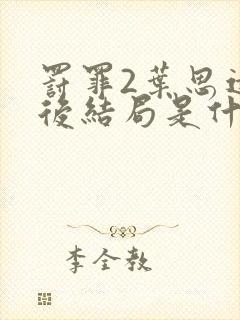 罸罪2葉思
後結局是什
李全教